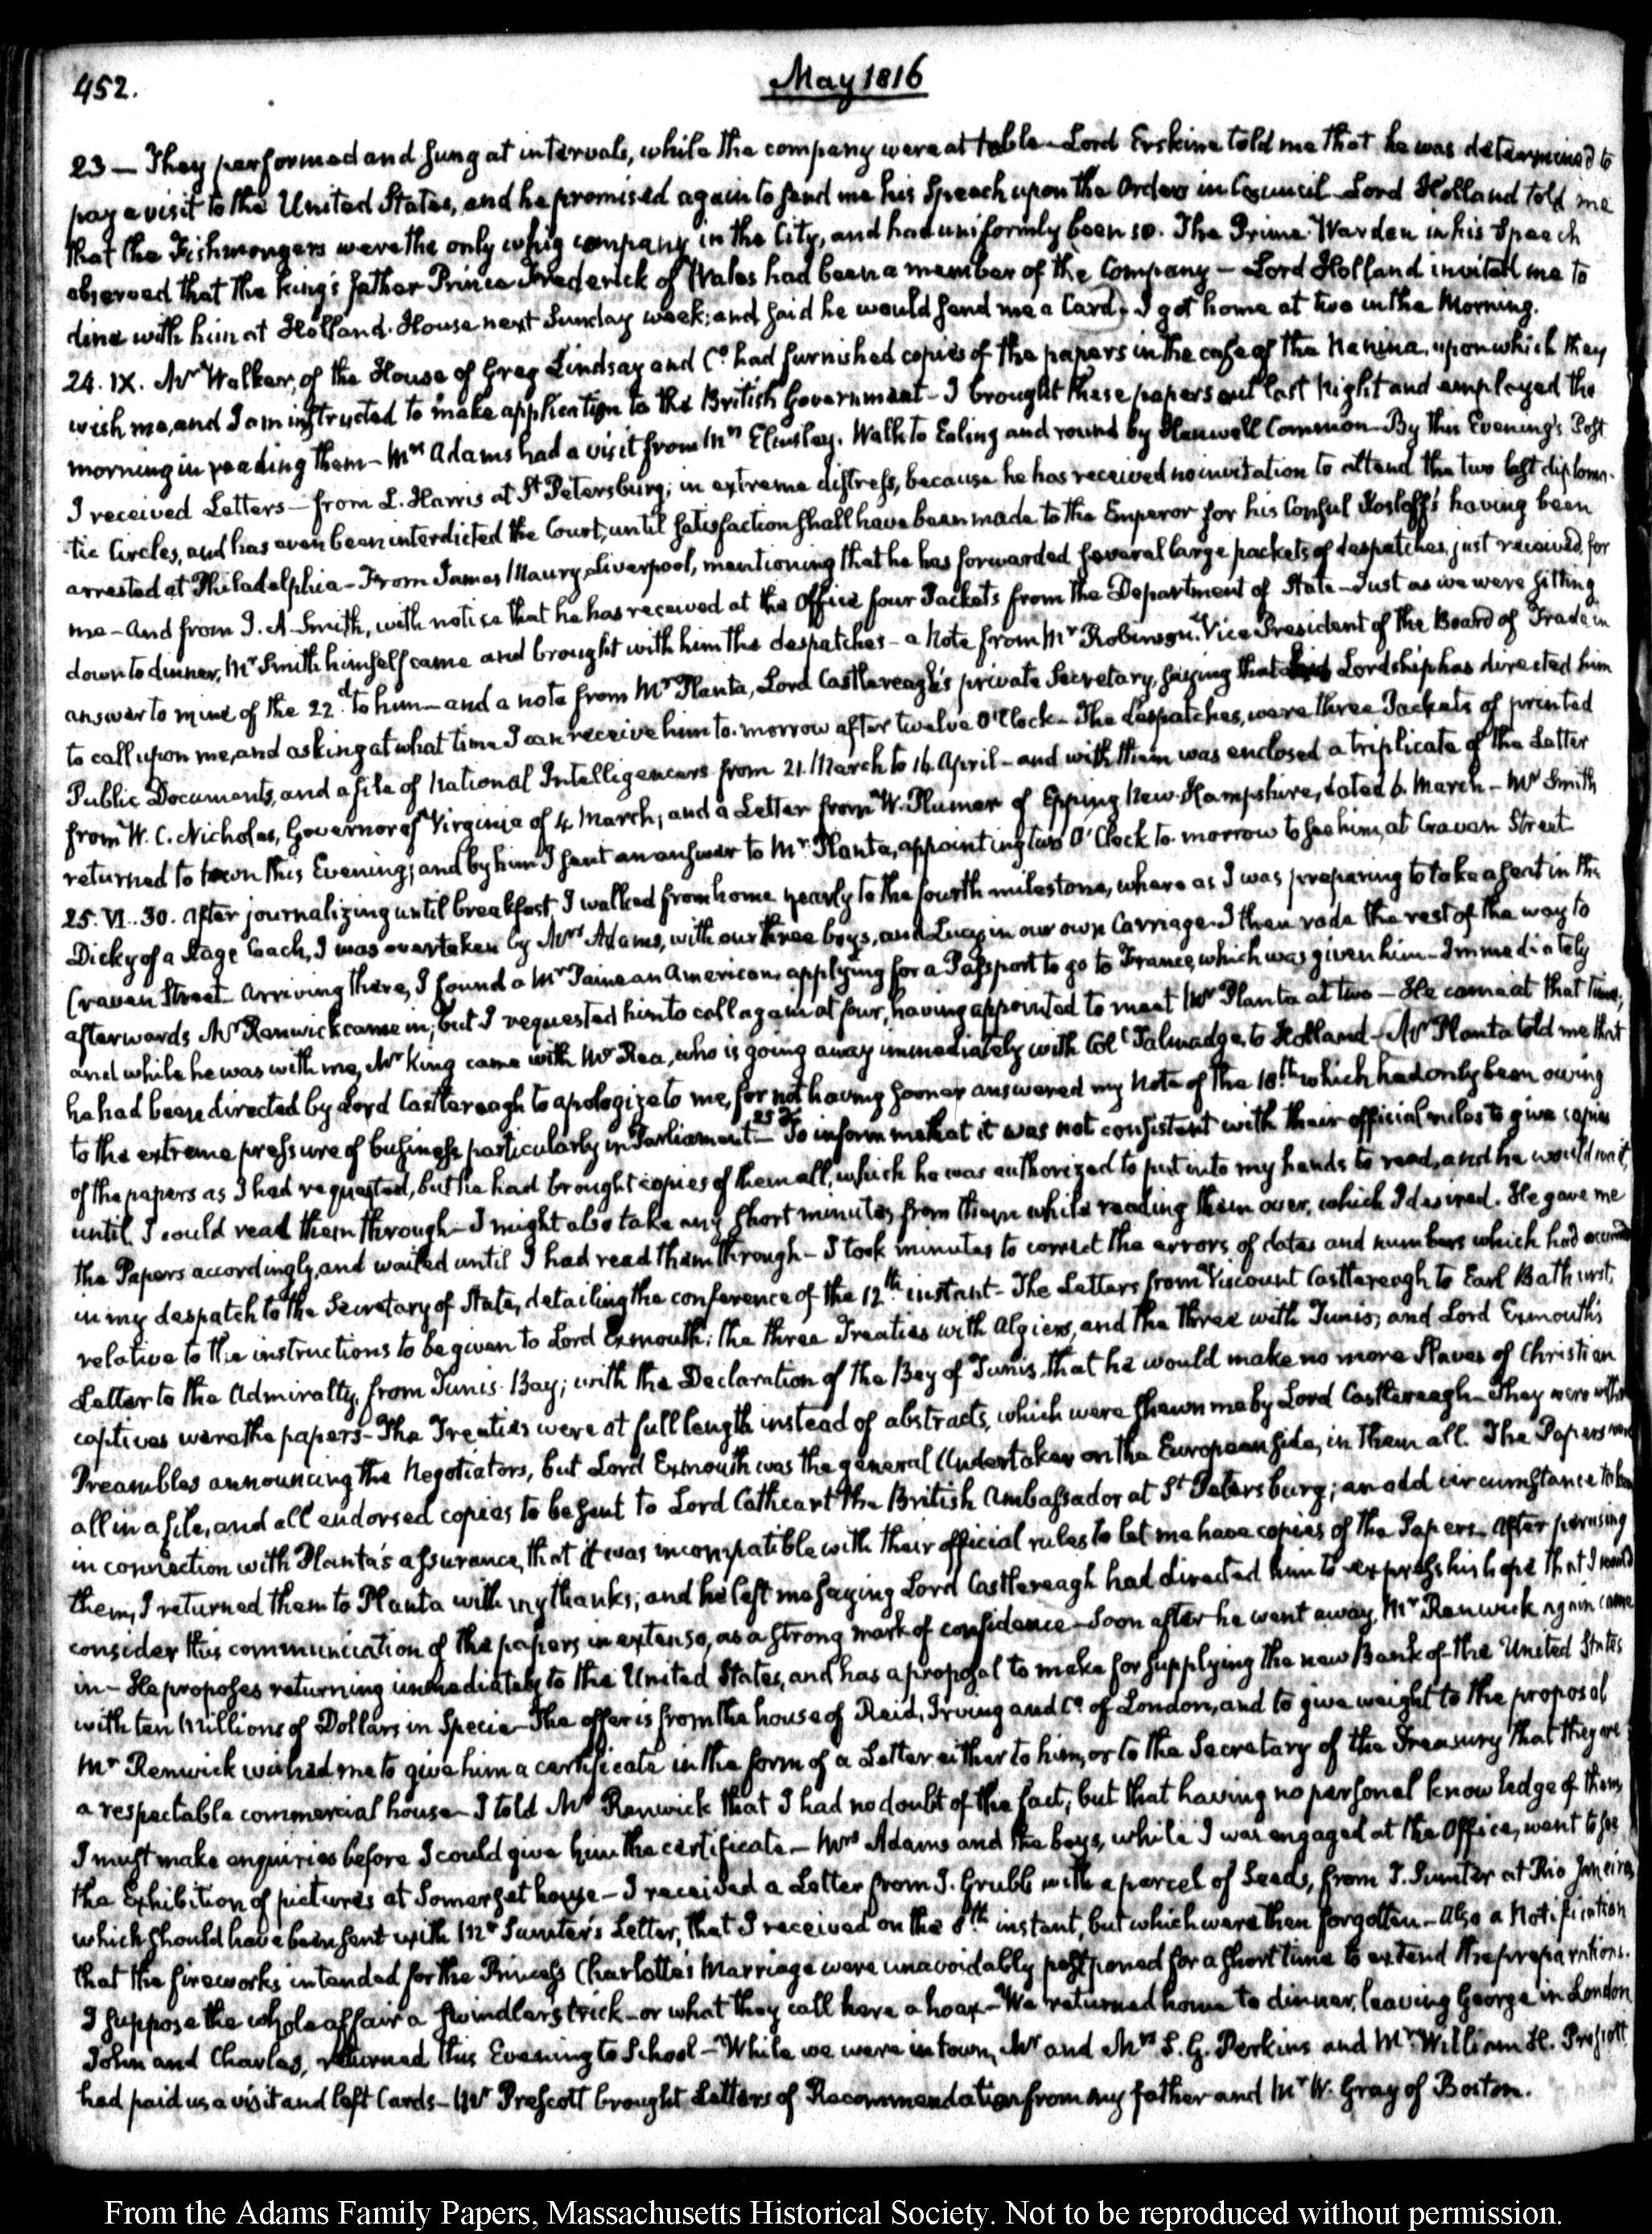 452.
May 1816
23 — They performed and sung at intervals, while the company were at table — Lord Erskine told me that he was determined to
pay a visit to the United States, and he promised again to send me his Speech upon the Orders in Council — Lord Holland told me
that the Fishmongers were the only whig company in the City, and had uniformly been so. The Prime Warden in his Speech
observed that the king's father Prince Frederick of Wales had been a member of the Company — Lord Holland invited me to
dine with him at Holland-House next Sunday week; and said he would send me a Card. I got home at two in the Morning.
24. IX. Mr Walker, of the House of Greg Lindsay and Co. had furnished copies of the papers in the case of the Nanina, upon which they
wish me, and I am instructed to make application to the British Government — I brought these papers out last Night and employed the
morning in reading them — Mrs Adams had a visit from Mrs Elmsley. Walk to Ealing and round by Hanwell Common — By this Evening's Post
I received Letters — from L. Harris at St Petersburg; in extreme distress, because he has received no invitation to attend the two last diploma-
tic Circles, and has even been interdicted the Court, until satisfaction shall have been made to the Emperor for his Consul Kosloff's having been
arrested at Philadelphia — From James Maury, Liverpool, mentioning that he has forwarded several large packets of despatches, just received, for
me — And from J. A. Smith, with notice that he has received at the Office four Packets from the Department of State — Just as we were sitting
down to dinner, Mr Smith himself came and brought with him the despatches — a Note from Mr Robinson, Vice President of the Board of Trade in
answer to mine of the 22d. to him — and a note from Mr Planta, Lord Castlereagh's private Secretary, saying that his Lordship has directed him
to call upon me, and asking at what time I can receive him to-morrow after twelve O'Clock — The despatches, were three Packets of printed
Public Documents, and a file of National Intelligencers from 21. March to 16. April — and with them was enclosed a triplicate of the Letter
from W. C. Nicholas, Governor of Virginia of 4 March, and a Letter from W. Plumer of Epping New-Hampshire, dated 6. March — Mr Smith
returned to town this Evening; and by him I sent an answer to Mr Planta, appointing two O'Clock to-morrow to see him, at Craven Street
25. VI.30. After journalizing until breakfast, I walked from home nearly to the fourth milestone, where as I was preparing to take a seat in the
Dicky of a Stage Coach, I was overtaken by Mrs Adams, with our three boys, and Lucy in our own Carriage. I then rode the rest of the way to
Craven Street. Arriving there, I found a Mr Paine an American, applying for a Passport to go to France, which was given him — Immediately
afterwards Mr Renwick came in; but I requested him to call again at four, having appointed to meet Mr Planta at two — He came at that time;
and while he was with me, Mr King came with Mr Rea, who is going away immediately with Coll Talmadge, to Holland — Mr Planta told me that
he had been directed by Lord Castlereagh to apologize to me, for not having sooner answered my Note of the 18th which had only been owing
to the extreme pressure of business particularly in Parliament — To inform me that it was not consistent with their official rules to give copies
of the papers as I had requested, but he had brought copies of them all, which he was authorized to put into my hands to read, and he would wait,
until I could read them through — I might also take any short minutes from them while reading them over, which I desired. He gave me
the Papers accordingly, and waited until I had read them through — I took minutes to correct the errors of dates and numbers which had occurred
in my despatch to the Secretary of State, detailing the conference of the 12th instant — The Letters from Viscount Castlereagh to Earl Bathurst,
relative to the instructions to be given to Lord Exmouth; the three Treaties with Algiers, and the three with Tunis; and Lord Exmouth's
Letter to the Admiralty, from Tunis Bay; with the Declaration of the Bey of Tunis, that he would make no more Slaves of Christian
captives were the papers — The Treaties were at full length instead of abstracts, which were shewn me by Lord Castlereagh — They were with
Preambles announcing the Negotiators, but Lord Exmouth was the general Undertaker on the European side, in them all. The Papers were
all in a file, and all endorsed copies to be sent to Lord Cathcart the British Ambassador at St Petersburg; an odd circumstance taken
in connection with Planta's assurance, that it was incompatible with their official rules to let me have copies of the Papers. After perusing
them, I returned them to Planta with my thanks; and he left me saying Lord Castlereagh had directed him to express his hope that I would
consider this communication of the papers in extenso, as a strong mark of confidence — Soon after he went away, Mr Renwick again came
in — He proposes returning immediately to the United States, and has a proposal to make for supplying the new Bank of the United States
with ten Millions of Dollars in Specie — The offer is from the house of Reid, Irving and Co. of London, and to give weight to the proposal
Mr Renwick wished me to give him a certificate in the form of a Letter either to him, or to the Secretary of the Treasury that they are
a respectable commercial house — I told Mr Renwick that I had no doubt of the fact; but that having no personal knowledge of them,
I must make enquiries before I could give him the certificate — Mrs Adams and the boys, while I was engaged at the Office, went to see
the Exhibition of pictures at Somerset house — I received a Letter from J. Grubb with a parcel of Seeds, from T. Sumter at Rio Janeiro,
which should have been sent with Mr Sumter's Letter, that I received on the 8th instant, but which were then forgotten — Also a Notification
that the fireworks intended for the Princess Charlotte's Marriage were unavoidably postponed for a short time to extend the preparations.
I suppose the whole affair a swindlers trick — or what they call here a hoax — We returned home to dinner, leaving George in London
John and Charles, returned this Evening to School — While we were in town, Mr and Mrs S. G. Perkins and Mr William H. Prescott
had paid us a visit and left Cards — Mr Prescott brought Letters of Recommendation from my father and Mr W. Gray of Boston.
From the Adams Family Papers, Massachusetts Historical Society. Not to be reproduced without permission.